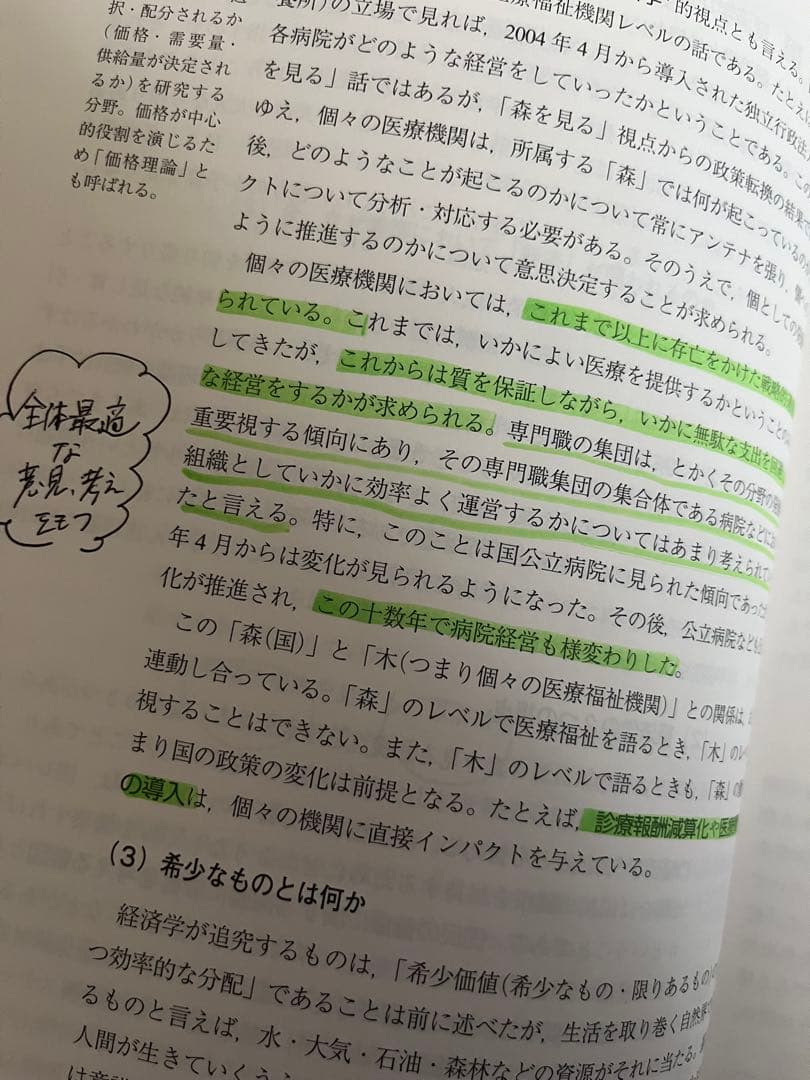 択・配分されるか
(価格・需要量・
供給量が決定され
るか)を研究する
分野。価格が中心
的役割を演じるた
め「価格理論」と
も呼ばれる。
的視点とも言える。
の立場で見れば，2004年4月から導入された独立行政法
療福祉機関レベルの話である。たとえば
各病院がどのような経営をしていったかということである。こ
を見る」話ではあるが，「森を見る」視点からの政策転換の結果で
ゆえ，個々の医療機関は，所属する「森」では何が起こっているのか
後，どのようなことが起こるのかについて常にアンテナを張り，
クトについて分析・対応する必要がある。そのうえで，個としての
ように推進するのかについて意思決定することが求められる。
個々の医療機関においては，これまで以上に存亡をかけた戦略的
られている。これまでは，いかによい医療を提供するかということの
してきたが，これからは質を保証しながら，いかに無駄な支出を
な経営をするかが求められる。専門職の集団は，とかくその分野の
重要視する傾向にあり，その専門職集団の集合体である病院などに
組織としていかに効率よく運営するかについてはあまり考えられて
たと言える。特に，このことは国公立病院に見られた傾向であった
年4月からは変化が見られるようになった。その後，公立病院なども
化が推進され，この十数年で病院経営も様変わりした。
この「森(国)」と「木(つまり個々の医療福祉機関)」との関係は，
連動し合っている。「森」のレベルで医療福祉を語るとき，「木」のレ
視することはできない。また，「木」のレベルで語るときも，「森」の
まり国の政策の変化は前提となる。たとえば，診療報酬減算化や医療
の導入は，個々の機関に直接インパクトを与えている。
(3) 希少なものとは何か
経済学が追究するものは，「希少価値(希少なもの・限りあるもの)
つ効率的な分配」であることは前に述べたが，生活を取り巻く自然
るものと言えば，水・大気・石油・森林などの資源がそれに当たる。
人間が生きていくう
全体最適
な
意見、考え
をもつ